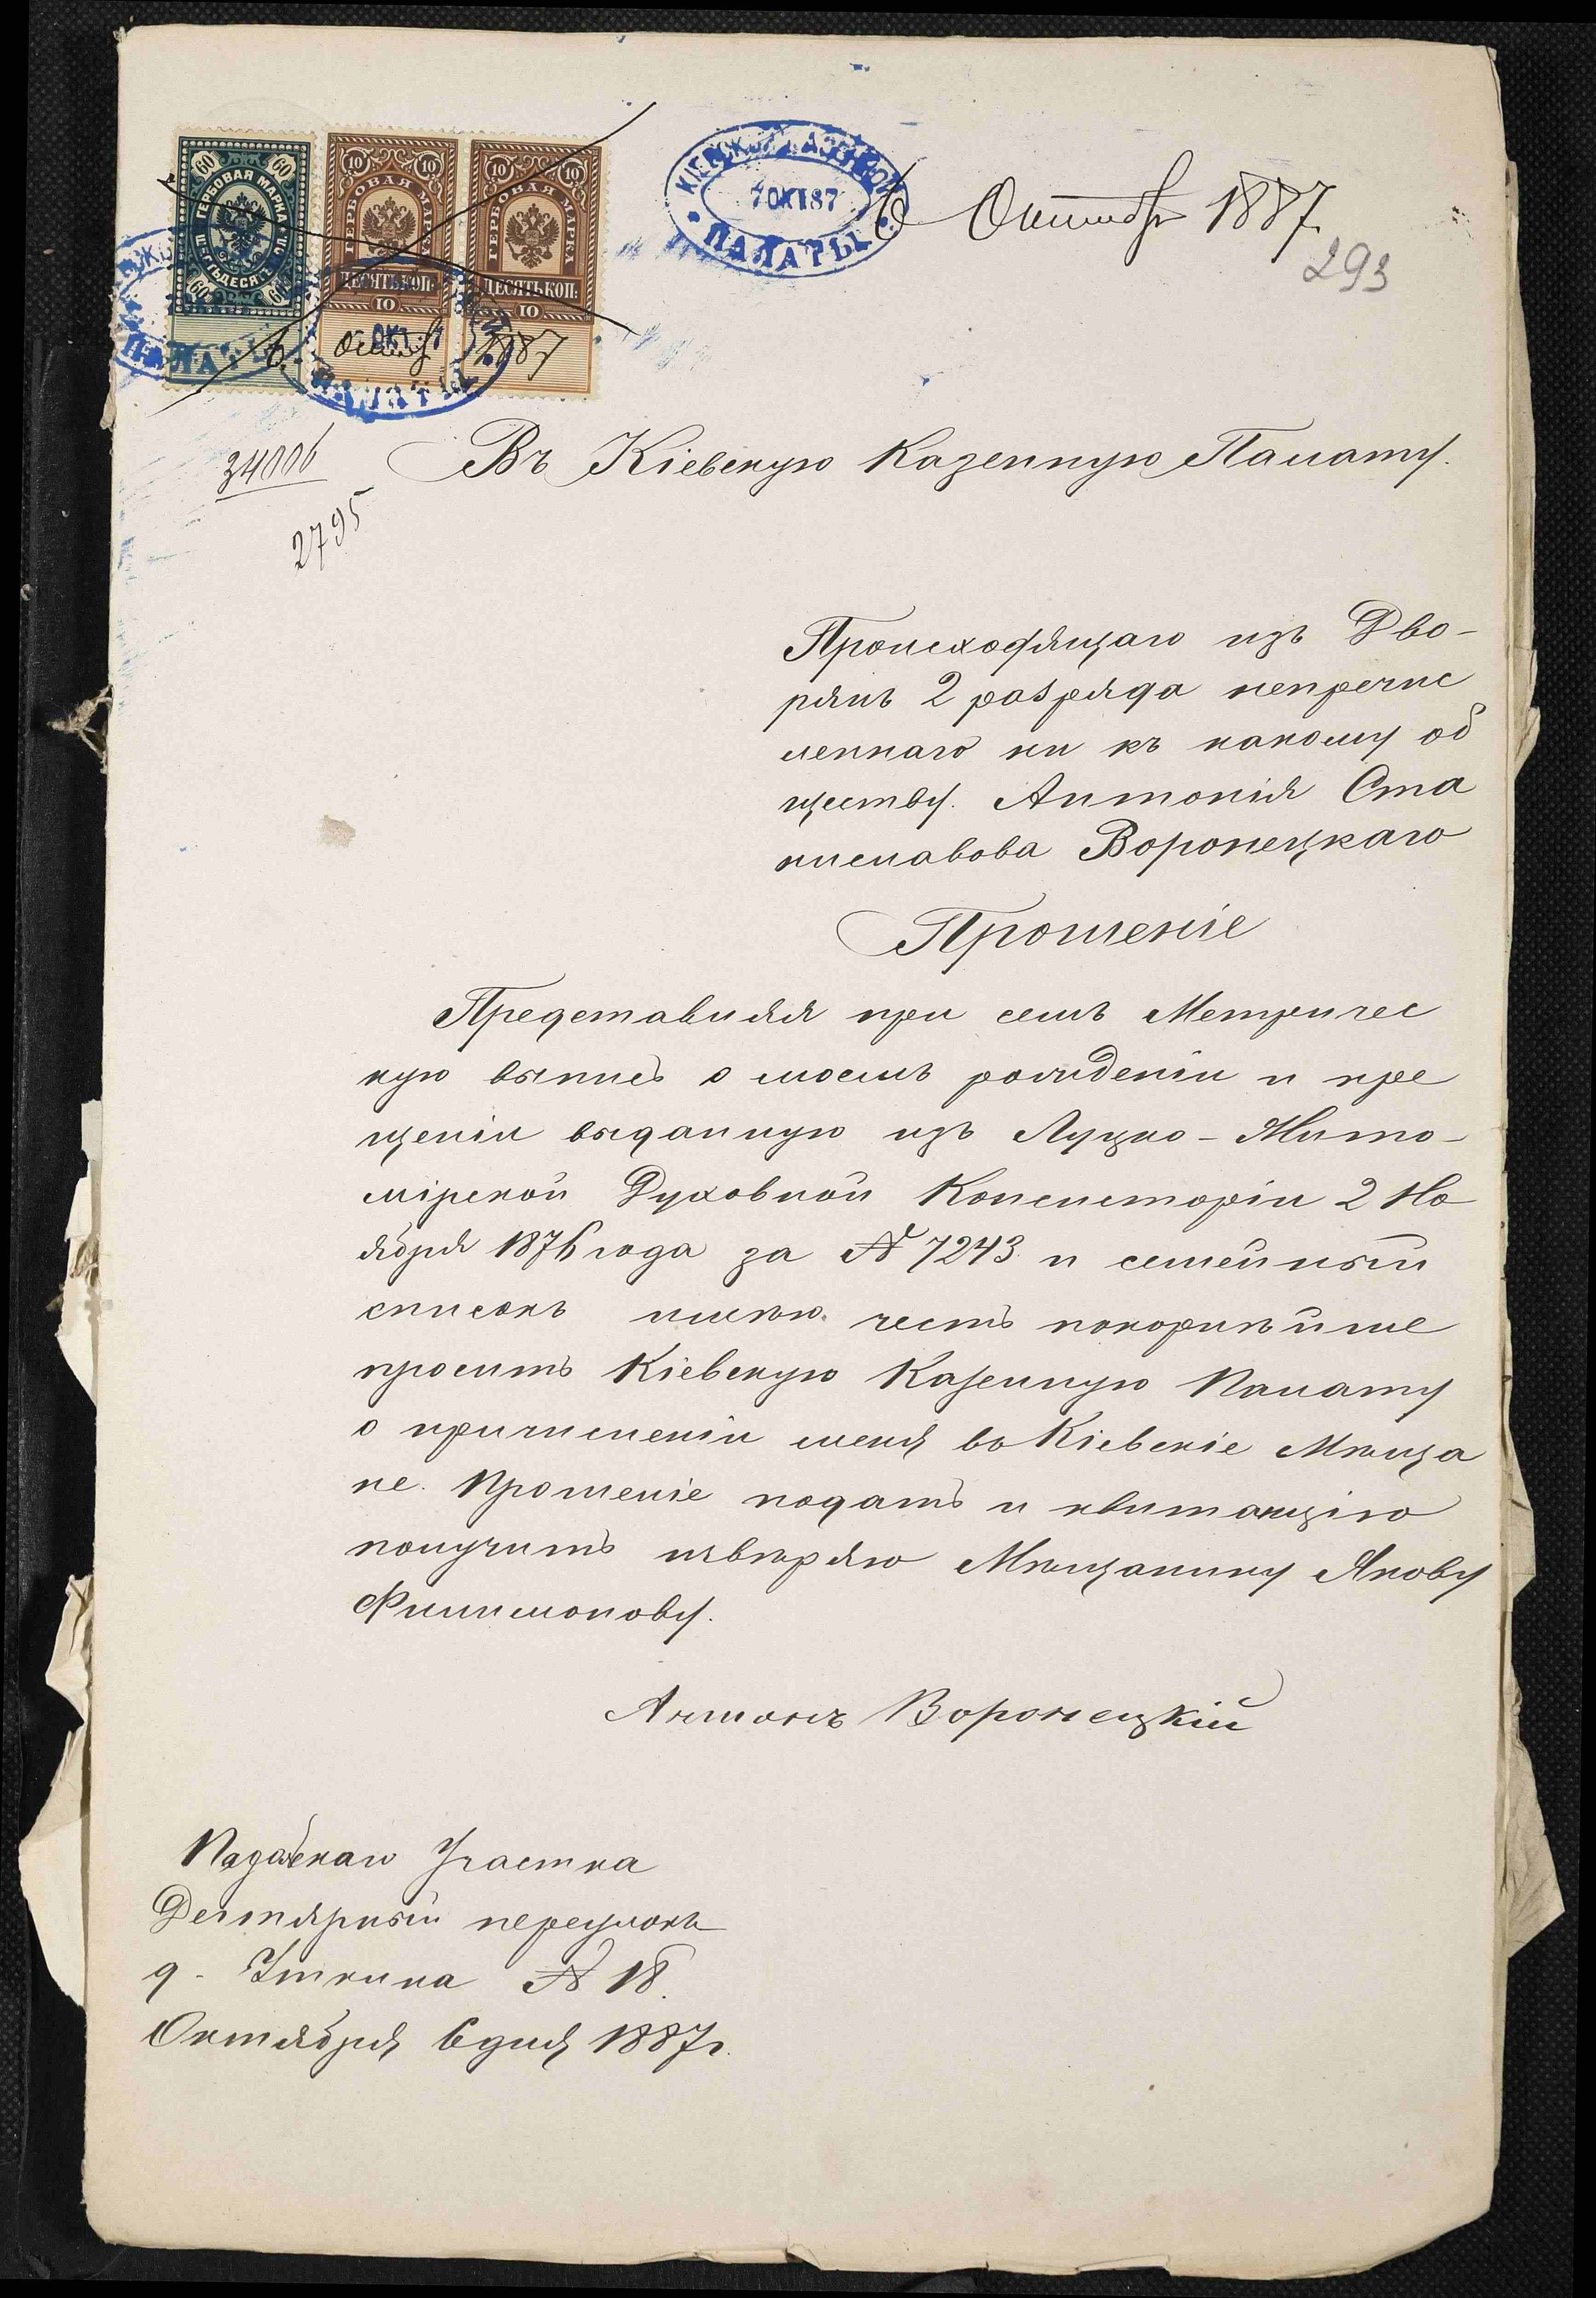 60 60
ГЕРБОВАЯ МАРКА
ШЕСТЬДЕСЯТЪ КОП.
60 60
10 10
ГЕРБОВАЯ МАРКА
ДЕСЯТЬ КОП.
10
10 10
ГЕРБОВАЯ МАРКА
ДЕСЯТЬ КОП.
10
6 Октяб 1887
КІЕВСКОЙ КАЗЕННОЙ
7 ОКТ 87
ПАЛАТЫ
6 Октябр 1887.
293
34006
2795
Въ Кіевскую Казенную Палату.
Происходящаго изъ Дво-
рянъ 2 разряда непречис
леннаго ни къ какому об
ществу. Антонія Ста
ниславова Воронецкаго
Прошеніе
Представляя при семъ Метричес
кую выпись о моемъ рожденіи и кре
щеніи выданную изъ Луцко-Жито-
мірской Духовной Консисторіи 2 Но
ября 1876 года за № 7243 и семейный
списокъ имѣю честь покорнѣйше
просить Кіевскую Казенную Палату
о причисленіи меня во Кіевскіе Мѣща
не. Прошеніе подать и квитанцію
получить ввѣряю Мѣщанину Якову
Филимонову.
Антонъ Воронецкій
Участка
Дегтярный переулокъ
д. Уткина № 18.
Октября 6 дня 1887 г.